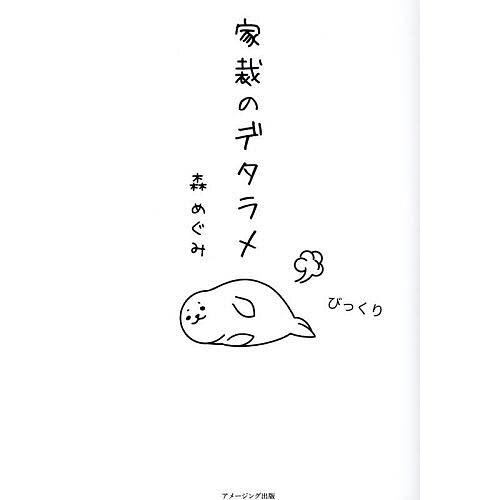 家裁のデタラメ
森 めぐみ
びっくり
アメージング出版